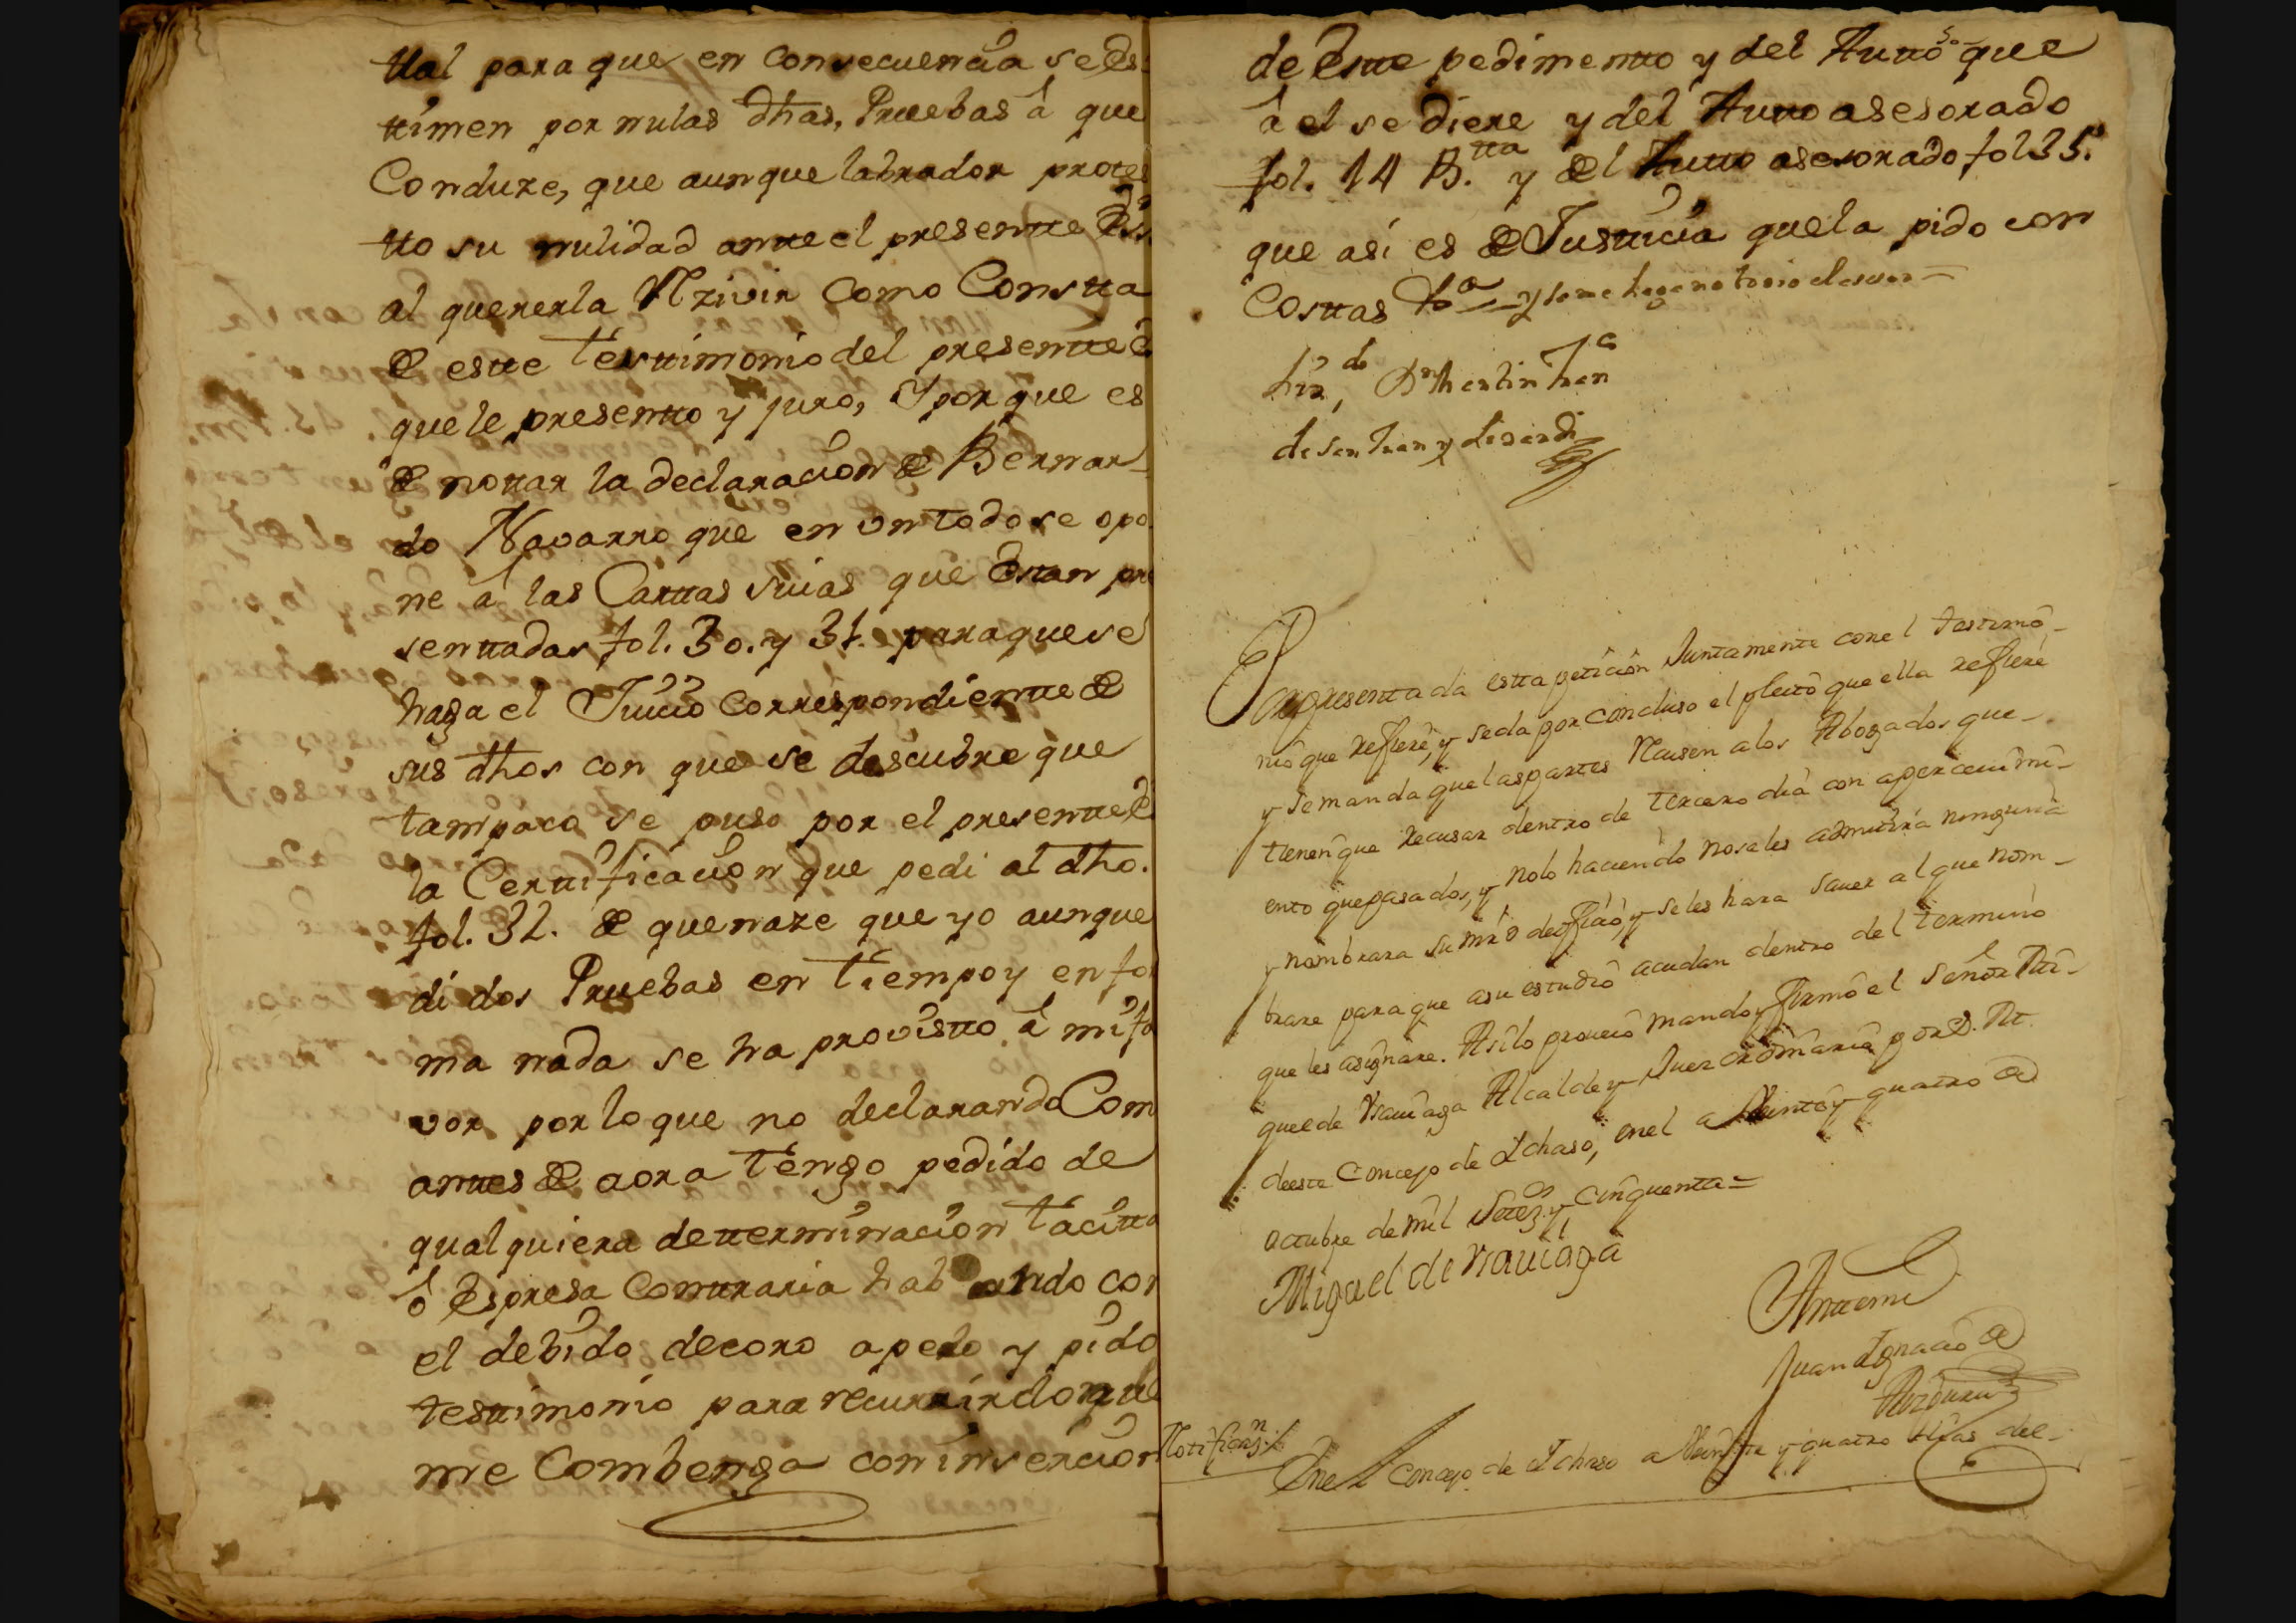 ttal para que en consecuencia se es-
ttimen por nulas dhas, Pruebas â que
Conduze, que aunque labrador protes
tto su nulidad antte el presentte
al quererla Rzivir Como Constta
de estte Testtimonio del presentte
que le presentto y juro, Y porque es
de nottar la declaracion de Bernar-
do Navarro que en un todo se opo
ne â las Carttas suias que Esttan pre
senttadas fol. 30. y 31. para que se
haga el Juicio Correspondientte de
sus dhos con que se descubre que
tampoco se puso por el presentte
la Certtificacion que pedi al dho.
fol. 32. de que naze que yo aunque
di dos Pruebas en Tiempo y en for
ma nada se ha provistto â mi fa
vor por lo que no declarando Com
anttes de aora Tengo pedido de
qualquiera detterminacion Tacitta
ô Espresa Conttraria hablando con
el debido decoro apelo y pido
testtimonio para recurrir donde
me Combenga con insercion
de Estte pedimentto y del Autto que
â el se diere y del Autto asesorado
fol. 14 B.tta y del Autto asesorado fol 35.
que asi es de Justticia que la pido con
Costtas &a y se me haga notorio
Liz.do Dn Martin Jn
de San Juan y
Por presentada estta peticion Juntamente con el testimo-
nio que refiere, y se da por concluso el pleito que ella refiere
y se manda que las partes Recusen a los Abogados que
tienen que recusar dentro de tercero dia con apercevimi-
ento que pasados, y no lo haciendo no se les admitirà ninguna
y nombrara su mrd de oficio y se les hara saver al que nom-
brare para que a su estudio acudan dentro del termino
que les asignare. Asi lo proveio mando y firmò el Señor Mi-
guel de Ysaviaga Alcalde y Juez ordinario por S. M.
de este Concejo de Ichaso, en el a Veinte y quatro de
octubre de mil Setez.s y Cinquenta =
Miguel de Ysauiaga
Antte mi
Juan Ignacio de
Notificaz.n
En el Concejo de Ichaso a Veinte y quatro dias del